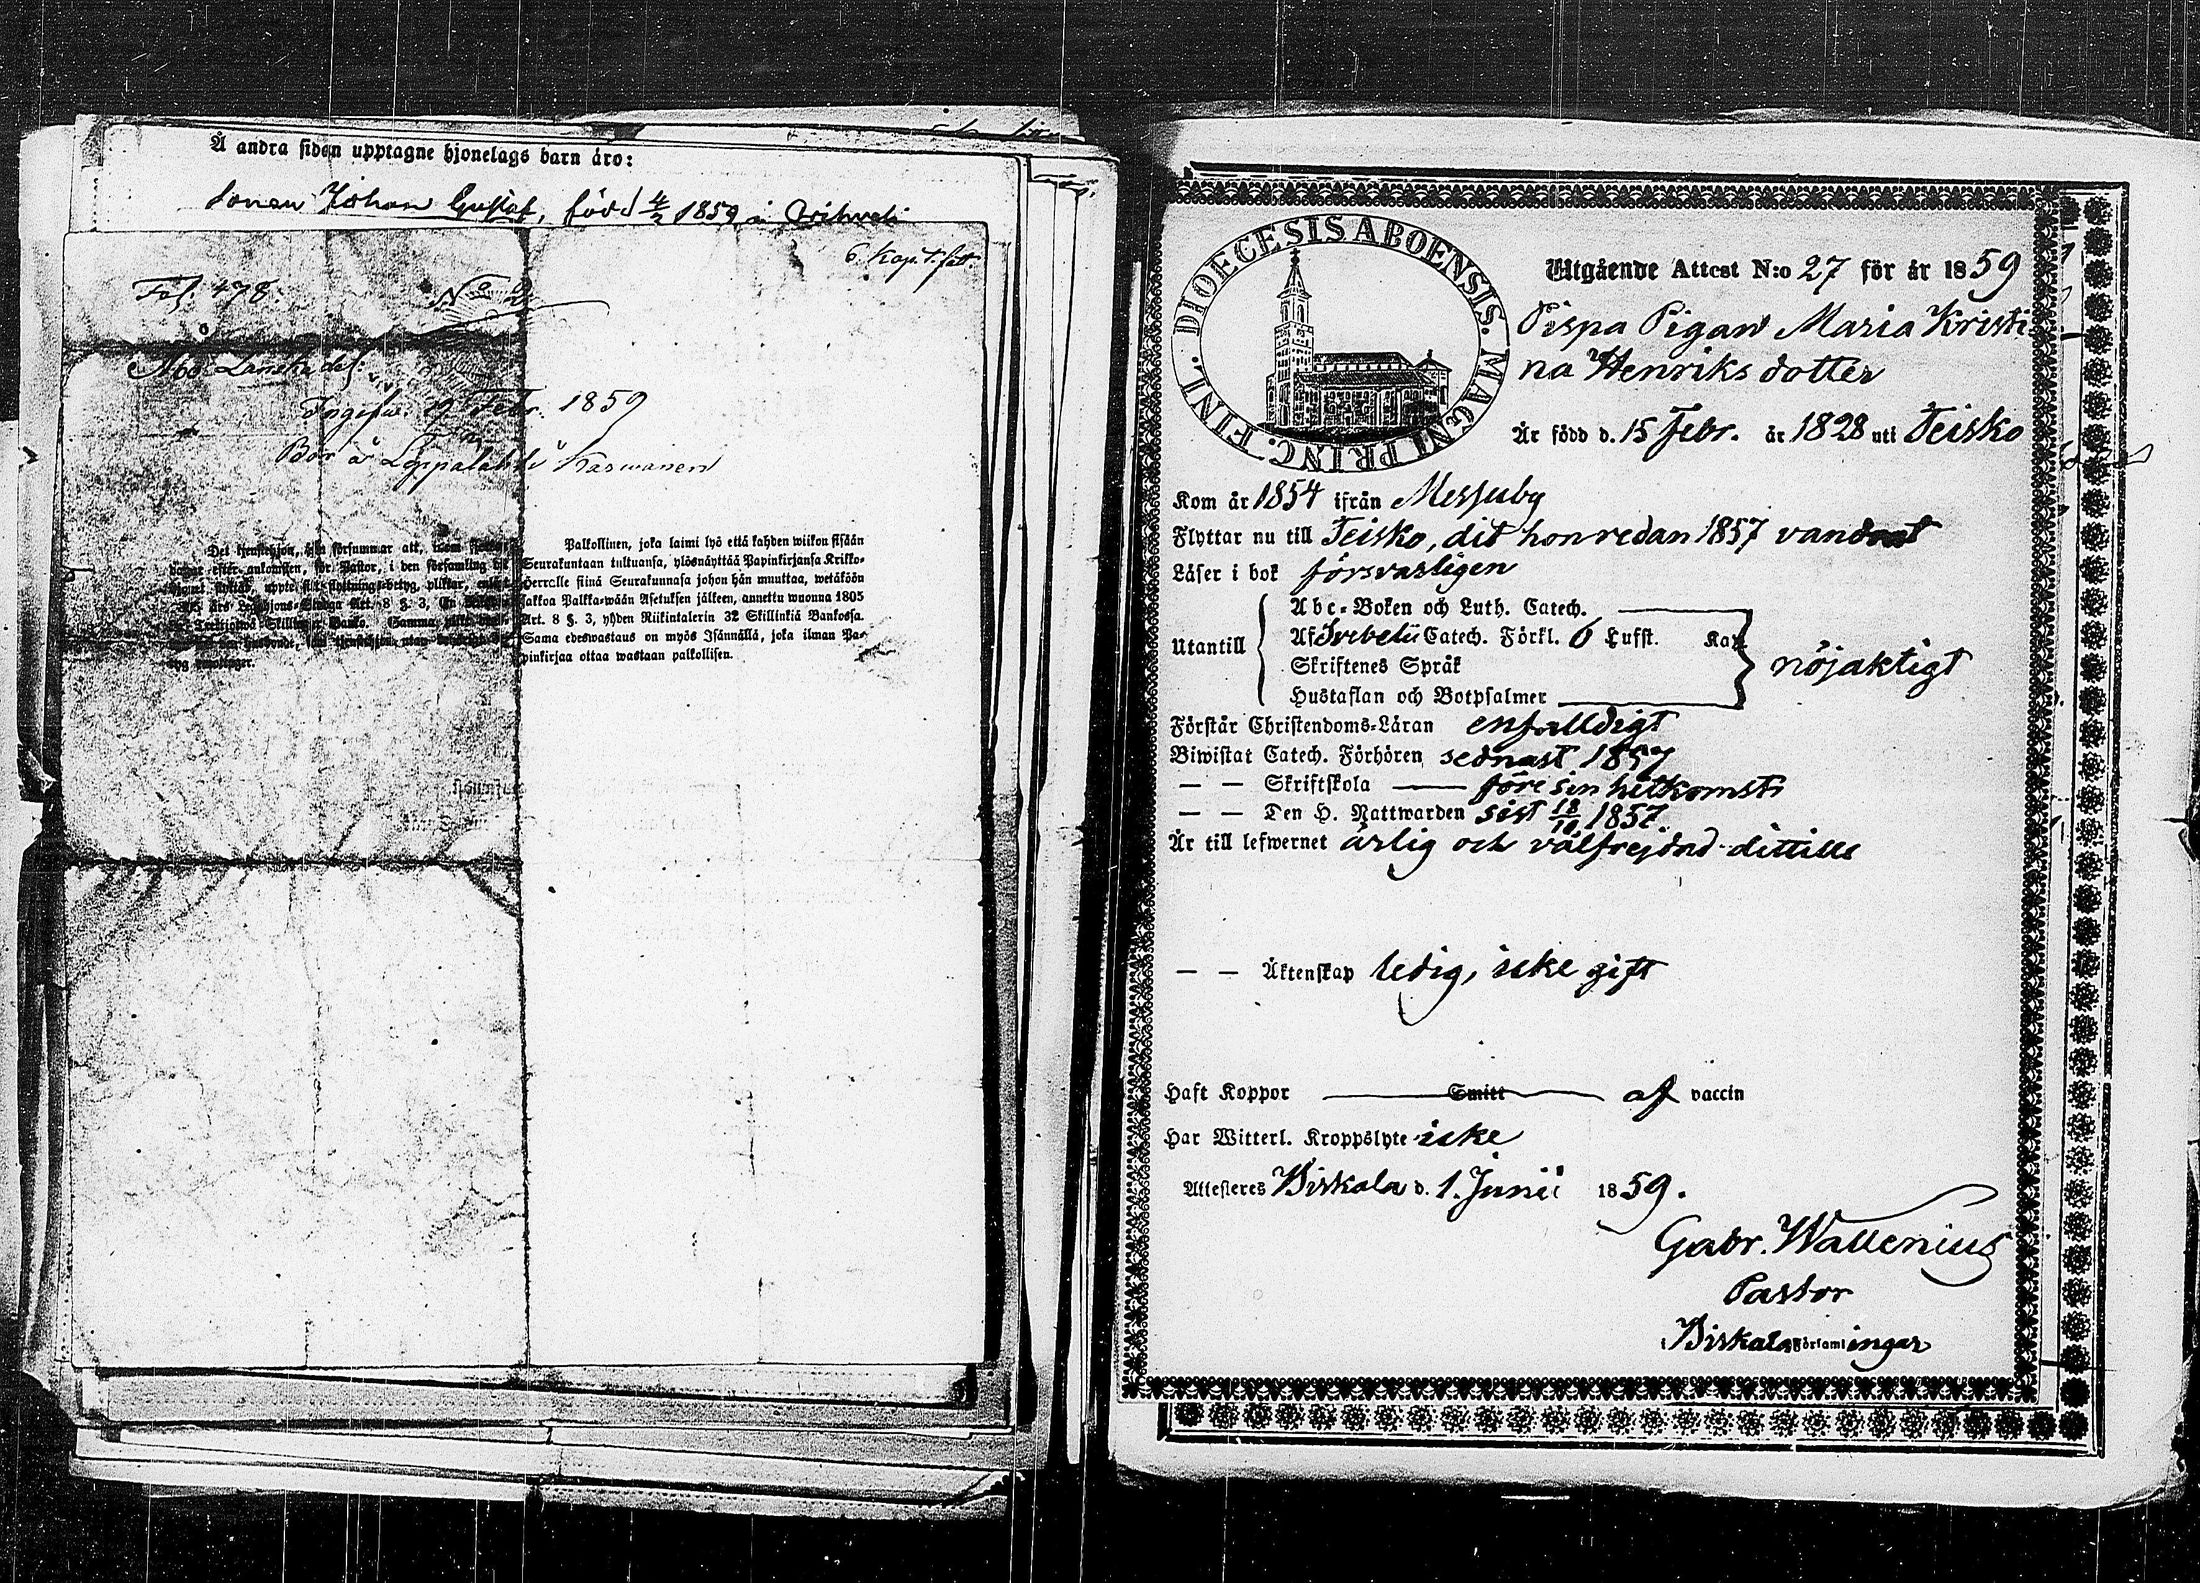 Å andra sidan upptagne hjonelags barn äro:
Sonen Johan Gustaf, född 4/2 1859 i
6. Kap. t. fatt.
Fol. 478.
No 2
Åbo Landskа
Ingifw. 19 Febr. 1859
Bor å Leppälahti
Det tjenstehjon, som försummar att, inom
dagar efter ankomsten, för Pastor, i den församling
flyttningsbetyg, pliktar, enligt
års Art. 8 §. 3, En
Skillingar Banko. Samma
Palkollinen, joka laimi lyö että kahden wiikon sisään
Seurakuntaan tultuansa, ylösnäyttää Papinkirjansa Kirkko-
Herralle siinä Seurakunnasa johon hän muuttaa, wetäköön
sakkoa Palkka-wään Asetuksen jälkeen, annettu wuonna 1805
Art. 8 §. 3, yhden Riikintalerin 32 Skillinkiä Bankossa.
Sama edeswastaus on myös Isännällä, joka ilman Pa-
pinkirjaa ottaa wastaan palkollisen.
DIOECESIS ABOENSIS. MAGNI PRINC. FINL.
Utgående Attest N:o 27 för år 1859
Pispa Pigan Maria Kristi
na Henriksdotter
Är född d. 15 Febr. år 1828 uti Teisko
Kom år 1854 ifrån Messuby
Flyttar nu till Teisko, dit hon redan 1857 vandrat
Läser i bok försvarligen
Utantill
Abc-Boken och Luth. Catech.
Af Svebelii Catech. Förkl. 6 Lufst. Kap.
Skriftenes Språk
Hustaflan och Botpsalmer
nöjaktigt
Förstår Christendoms-Läran enfalldigt
Biwistat Catech. Förhören sednast 1857
— — Skriftskola — före sin hitkomst
— — Den H. Nattwarden sist 18/10 1857.
Är till lefwernet ärlig och välfrejdad dittills
— — Äktenskap ledig, icke gift
Haft Koppor Smitt af vaccin
Har Witterl. Kroppslyte icke
Attesteras Birkala d. 1. Junii 1859.
Gabr. Wallenius
Pastor
i Birkala Församlingar